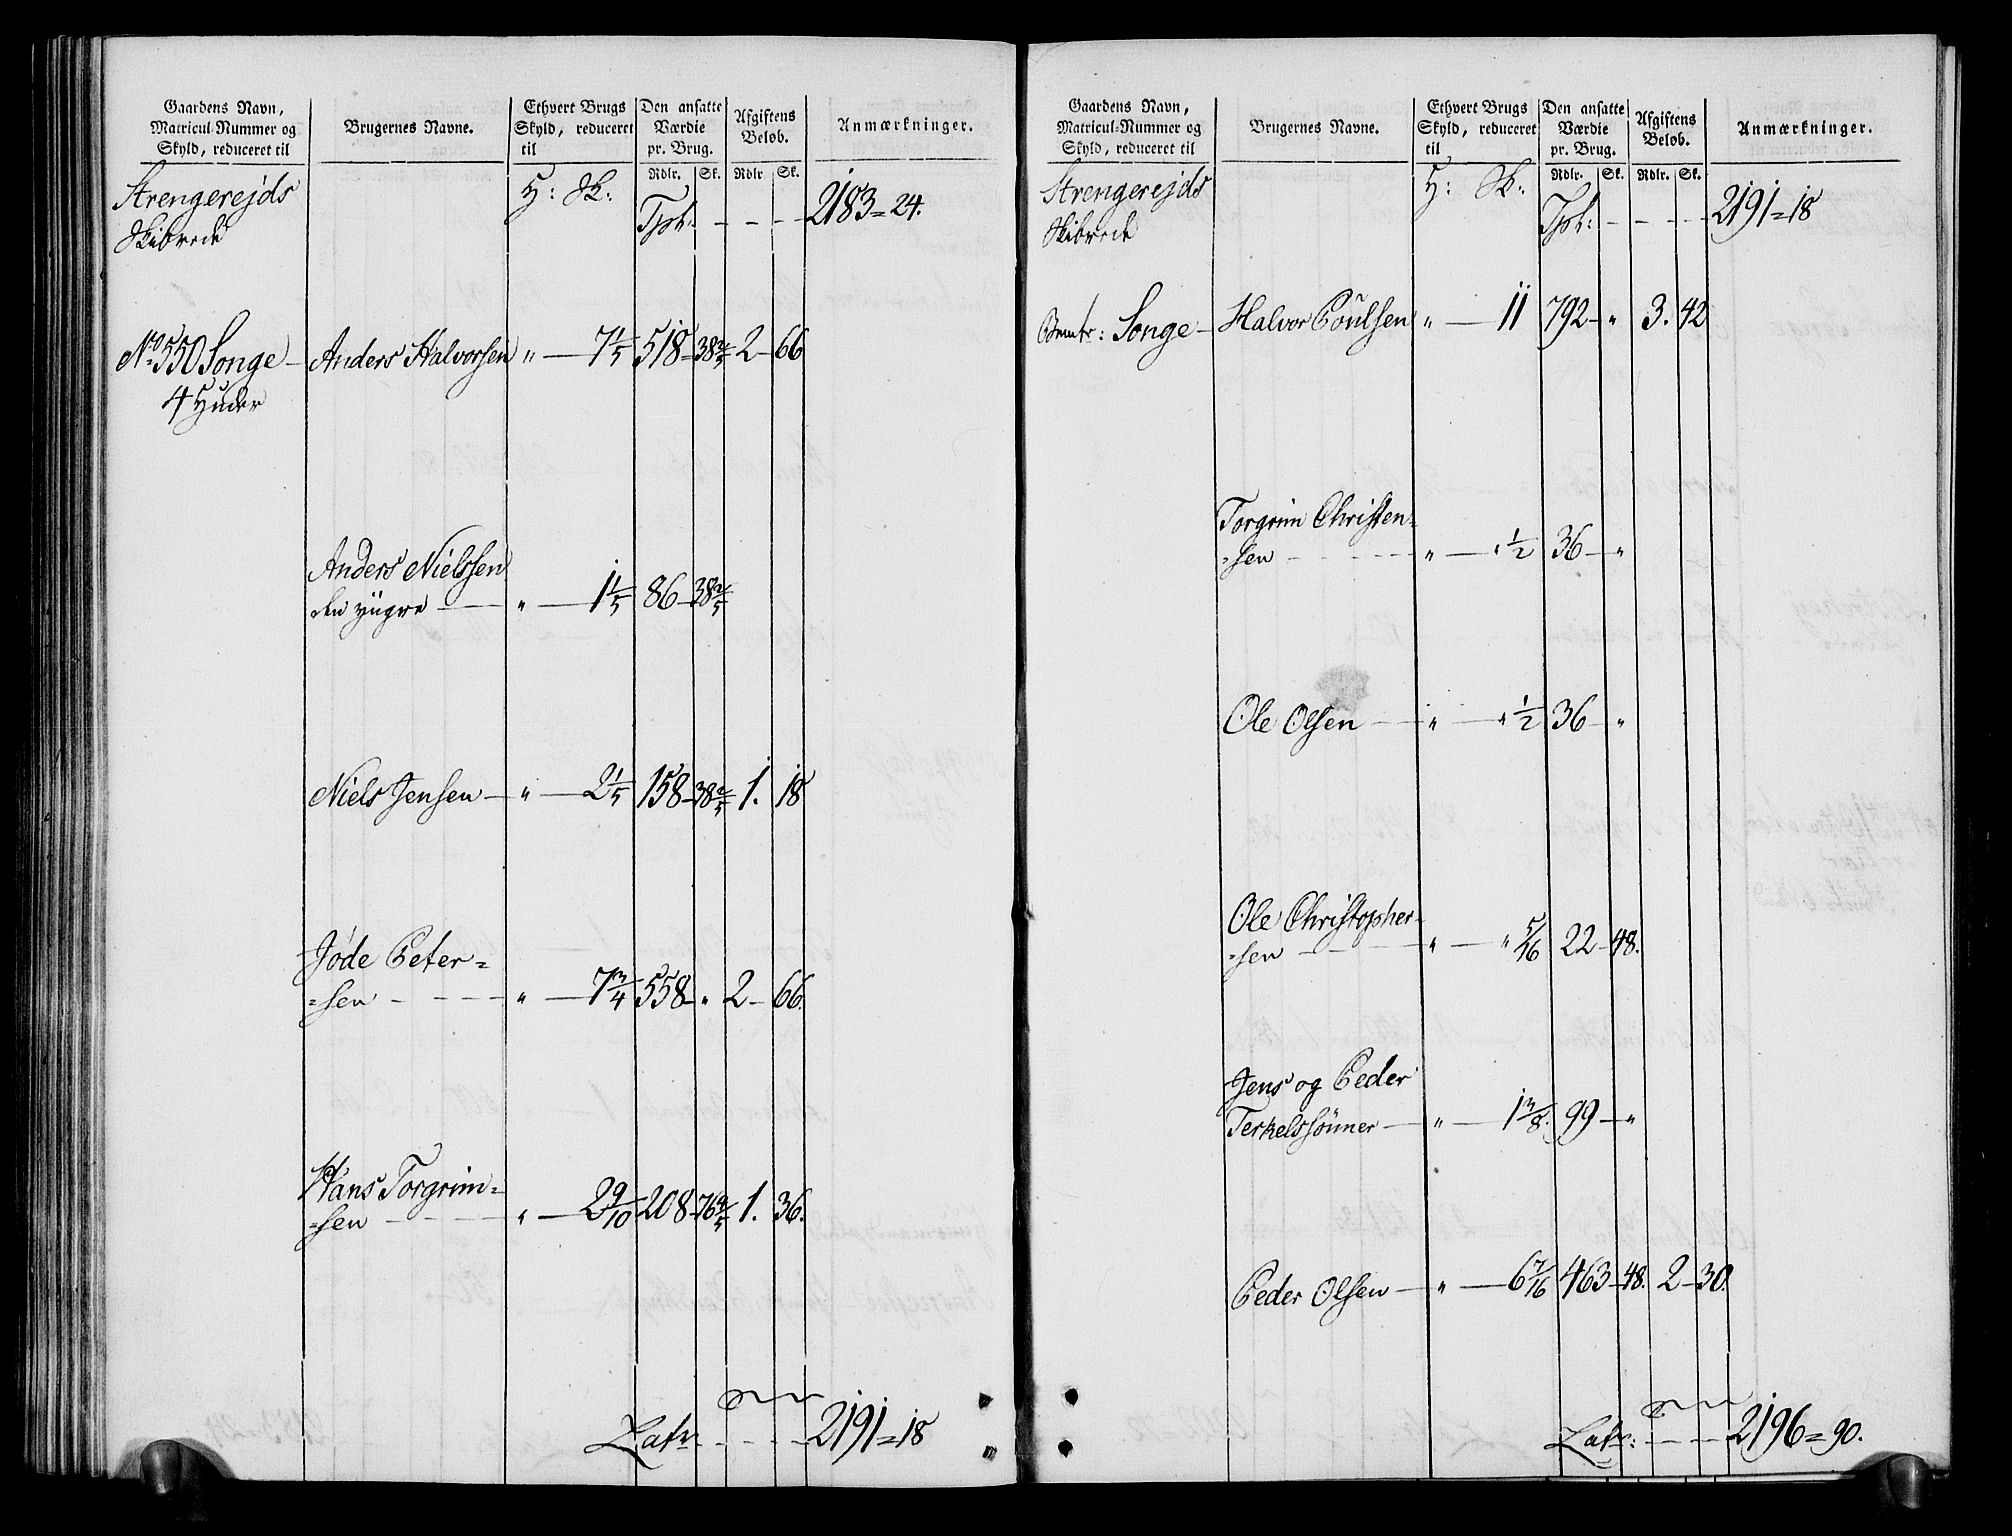 Gaardens Navn,
Matricul-Nummer og
Skyld, reduceret til
Brugernes Navne.
Ethvert Brugs
Skyld, reduceret
til
Den ansatte
Værdie
pr. Brug.
Afgiftens
Beløb.
Anmærkninger.
Rdlr. Sk. Rdlr Sk.
Strengerejds H: Sk: Tpt: - - - 2183=24.
Skibrede
No 550 Songe - Anders Halvorsen " - 7 1/5 518 - 38 2/5 2 - 66
4 Huder
Anders Nielssen
den yngre - " - 1 1/5 86 - 38 2/5
Niels Jensen - " - 2 1/5 158 - 38 2/5 1. 18
Jøde Peter=
=sen - - - " - 7 3/4 558 - " 2 - 66.
Hans Torgrim=
=sen - - - " - 2 9/10 208 - 76 4/5 1. 36.
Latr: - - - 2191=18
Gaardens Navn,
Matricul-Nummer og
Skyld, reduceret til
Brugernes Navne.
Ethvert Brugs
Skyld, reduceret
til
Den ansatte
Værdie
pr. Brug.
Afgiftens
Beløb.
Anmærkninger.
Rdlr. Sk. Rdlr. Sk.
Strengerejds H: Sk: Tpt: - - - 2191=18
Skibrede
Songe - Halvor Poulsen " - 11 792 - " 3. 42
Torgrim Christen=
=sen - - - " - " 1/2 36 - "
Ole Olsen - " - " 1/2 36 - "
Ole Christopher=
=sen - - " - " 5/16 22 - 48.
Jens og Peder
Terkelssönner - " - 1 3/8. 99 - "
Peder Olsen - " - 6 7/16 463 - 48. 2 - 30.
Latr: - - - 2196=90.